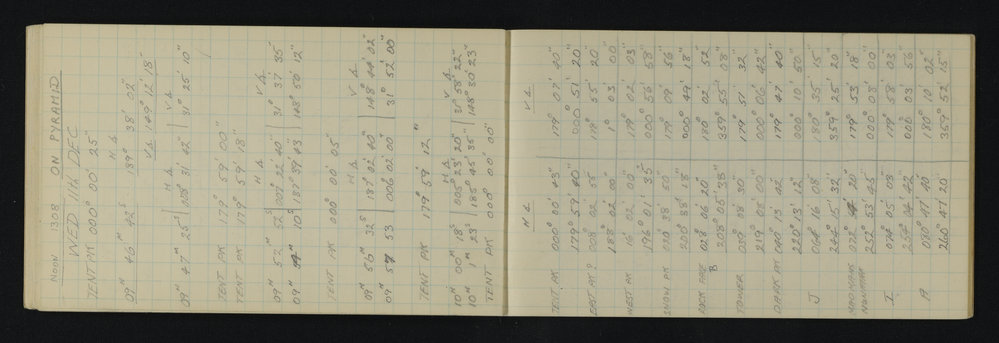 NOON 1308 ON PYRAMID
WED 11th DEC
TENT PK 000° 00' 25"
H∆
09H 46M 42S 189° 38' 02"
V∆ 149° 12' 18"
H∆ V∆
09H 47M 25S 008° 31' 42" 31° 25' 10"
TENT PK 179° 59' 00"
TENT PK 179° 59' 18"
H∆ V∆
09H 52M 52S 007° 22' 40" 31° 37 35"
09M 10S 187° 39' 43" 148° 50' 12"
TENT PK 000 00 05"
H∆ V∆
09H 56M 32S 187° 02' 40" 148° 44' 02"
09H 57 53 006 02' 00" 31° 52 00"
TENT PK 179° 59' 12"
H∆ V∆
10H 00M 18S 005° 23' 20" 31° 58' 22"
10H 1M 23S 185° 45' 35" 148° 30 23"
TENT PK 000° 00' 00"
H∆ V∆
TENT PK 000° 00' 43" 179° 07' 40"
179° 59' 40" 000° 51' 20"
EAST PK ? 008° 02' 55" 178° 55' 20"
188° 02 00" 1° 03' 00"
WEST PK 16° 02' 00" 179° 02' 03"
196° 01' 35" 000 56' 58"
SNOW PK 020 38' 50" 179° 09' 56"
200° 38' 18" 000° 49' 18"
ROCK FACE B 028° 06' 20" 180° 02' 52"
208° 05' 38" 359° 55' 08"
TOWER 039° 08' 30" 179° 51' 32"
219° 08' 00" 000° 06' 42"
DARK PK 040° 13' 42" 179° 47' 40"
220° 13' 12" 000 10' 50"
J 064° 16' 08" 180° 35' 15"
244° 15' 32" 359° 25' 20"
072° 20" 179° 53' 18"
252° 53' 000° 08' 00"
I 074° 05' 08" 179° 58' 03"
254° 04' 42" 000 03 56"
A 080° 47' 40" 180° 10' 02"
260° 47' 20" 359° 52' 15"